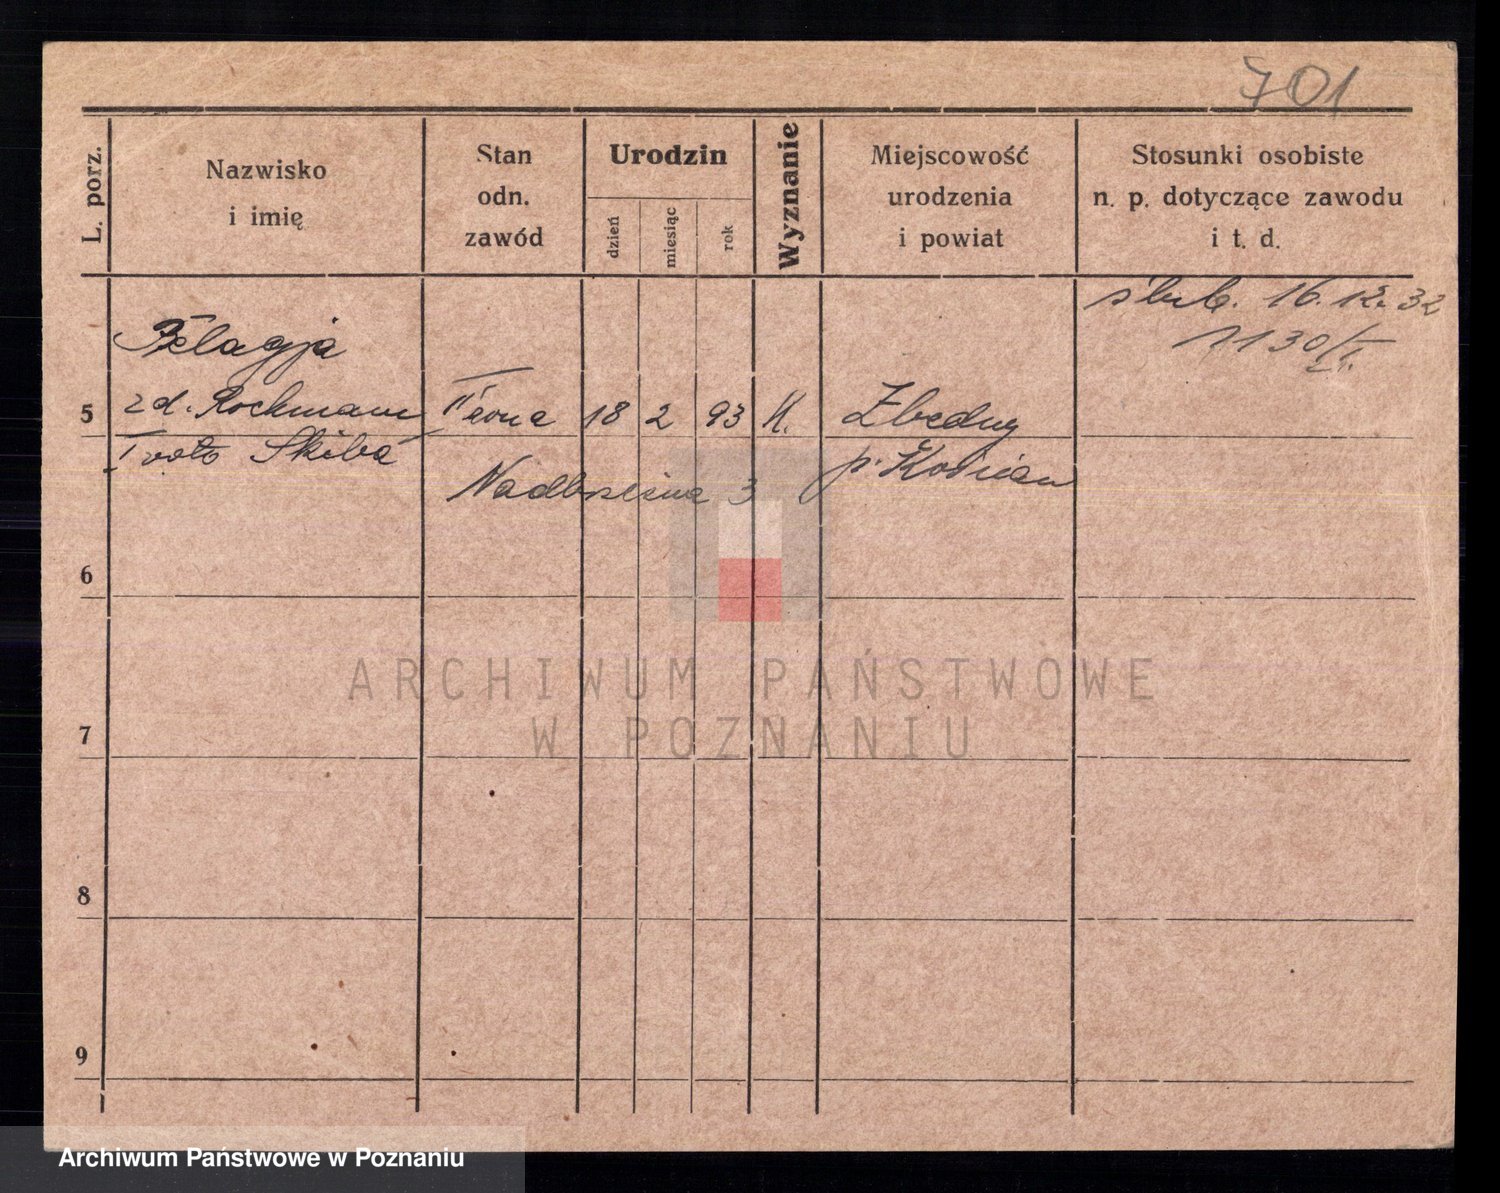 701
L. porz.
Nazwisko
i imię
Stan
odn.
zawód
Urodzin
dzień
miesiąc
rok
Wyznanie
Miejscowość
urodzenia
i powiat
Stosunki osobiste
n. p. dotyczące zawodu
i t. d.
ślub. 16.12.32
1130/II.
Pelagja
5 zd. Rochmann II żona 18 2 93 K. Zbędny
I voto Skiba p. Kościan
Nadbrzeżna 3
6
7
8
9
ARCHIWUM PAŃSTWOWE
W POZNANIU
Archiwum Państwowe w Poznaniu